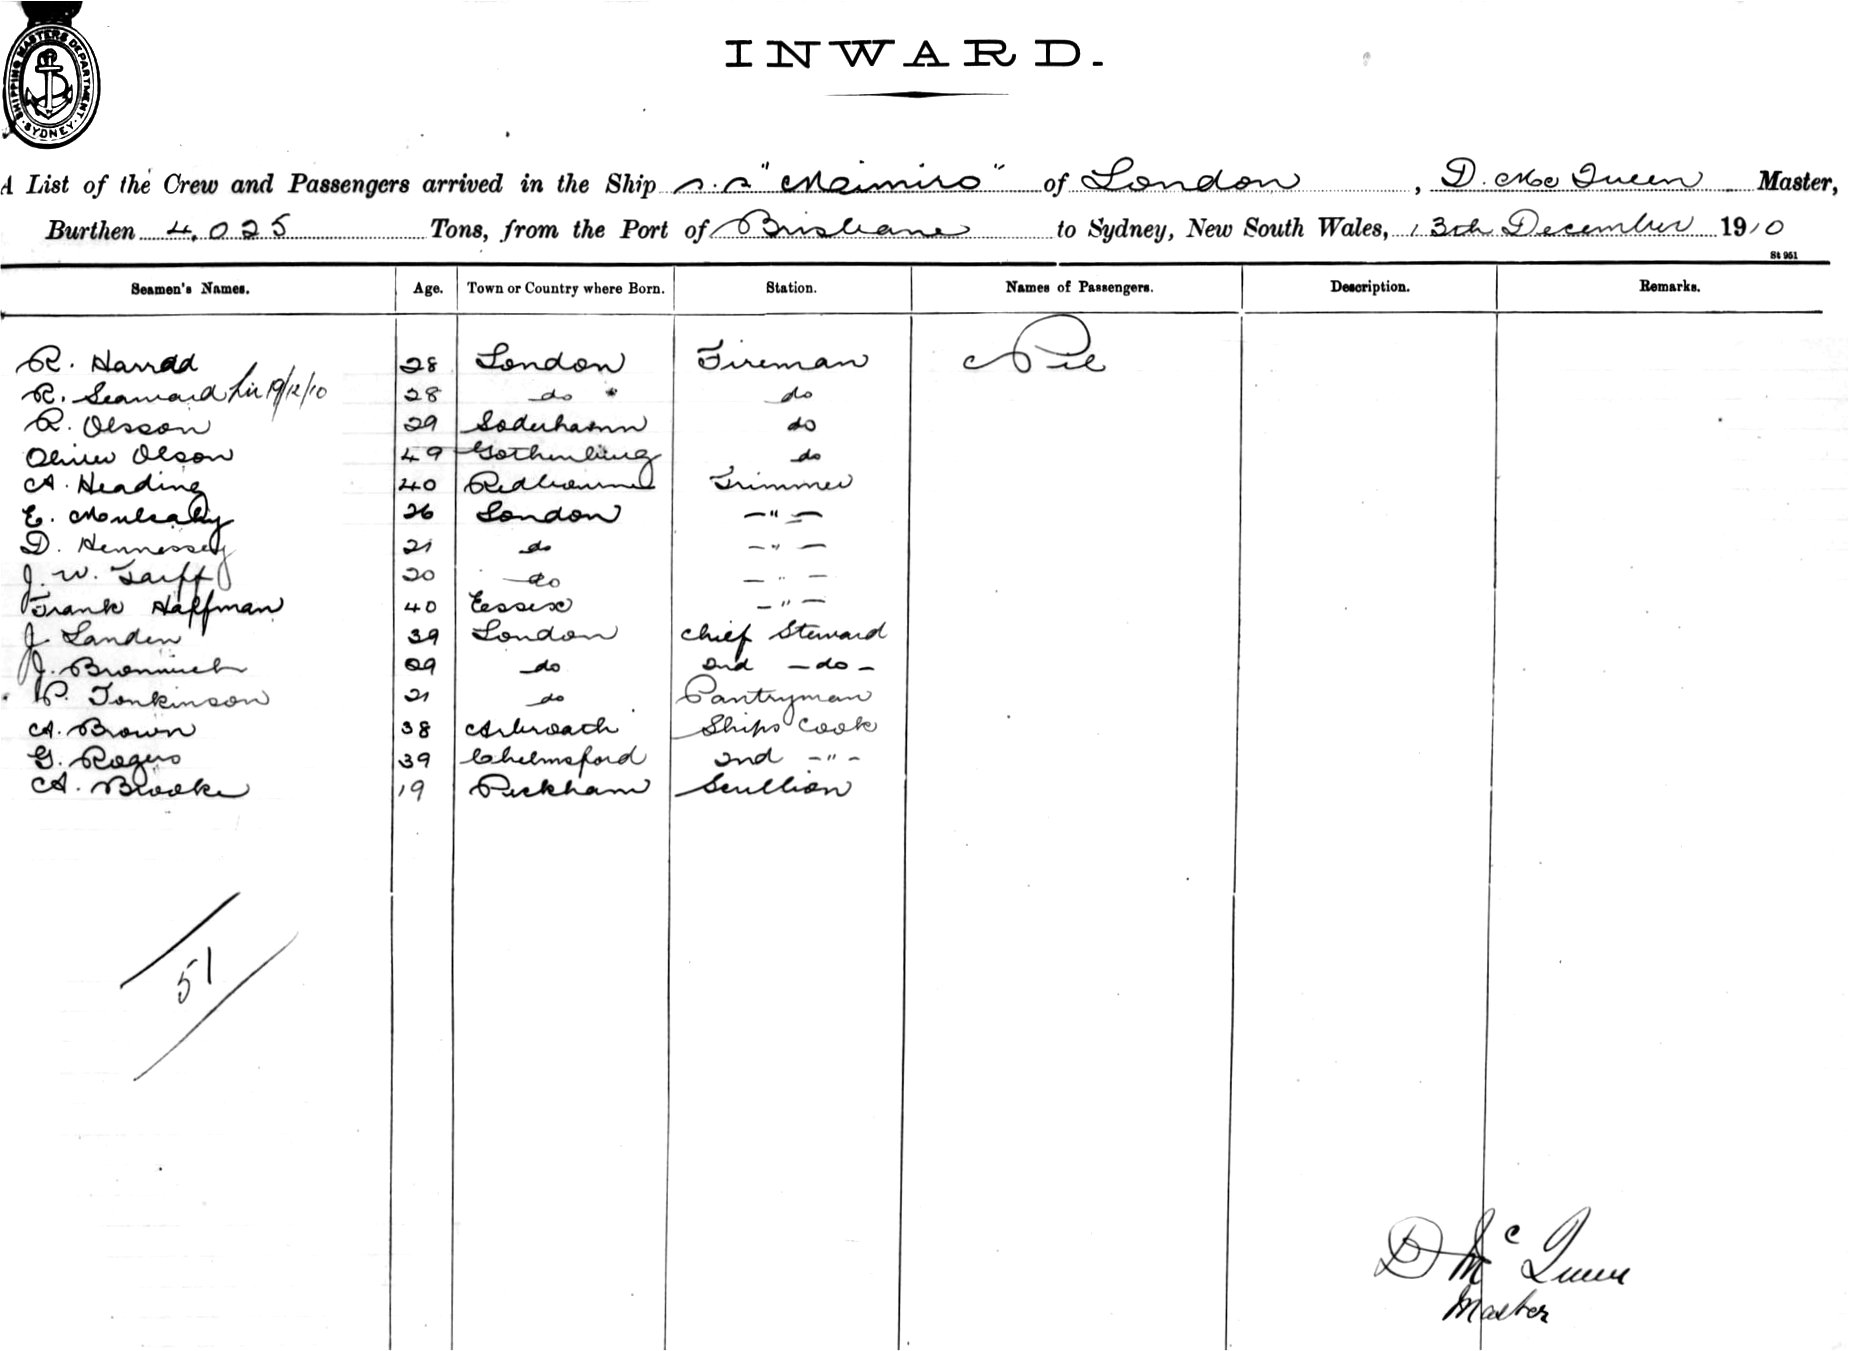 SHIPPING MASTERS DEPARTMENT
SYDNEY
INWARD.
A List of the Crew and Passengers arrived in the Ship s.s "Meimiro" of London, D. McQueen Master,
Burthen 4,025 Tons, from the Port of Brisbane to Sydney, New South Wales, 13th December 1910
St 951
Seamen's Names. Age. Town or Country where Born. Station. Names of Passengers. Description. Remarks.
R. Harrad 28 London Fireman Nil
R. Seaward 19/12/10 28 do do
R. Olsson 29 Soderhamn do
Oliver Olson 49 Gothenburg do
A. Heading 40 Redbourne Trimmer
E. Mulcahy 26 London - " -
D. Hennessey 21 do - " -
J. W. Tarff 20 do - " -
Frank Haffman 40 Essex - " -
J Landen 39 London Chief Steward
J. Bromwich 29 do 2nd - do -
P. Tonkinson 21 do Pantryman
A. Brown 38 Arbroath Ships Cook
G. Rogers 39 Chelmsford 2nd - " -
A. Brooke 19 Peckham Scullion
51
D McQueen
Master